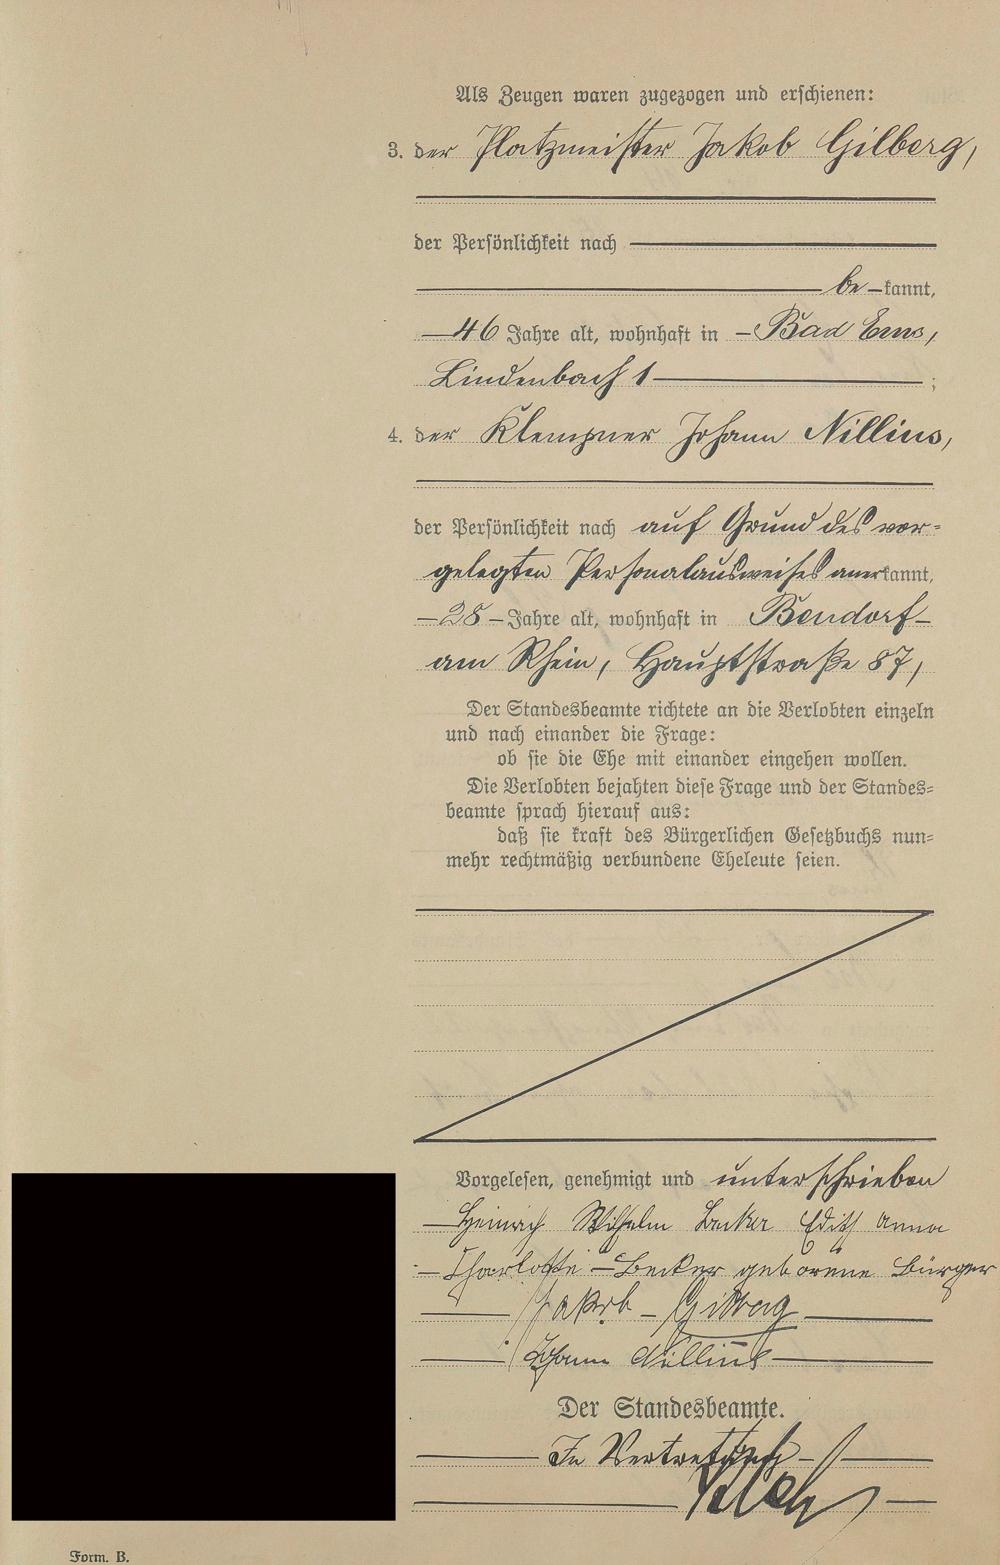 Als Zeugen waren zugezogen und erschienen:
3. der Platzmeister Jakob Gilberg,
der Persönlichkeit nach
be kannt,
46 Jahre alt, wohnhaft in Bad Ems,
Lindenbach 1 ;
4. der Klempner Johann Nillius,
der Persönlichkeit nach auf Grund des vor=
gelegten Personalausweises anerkannt,
28 Jahre alt, wohnhaft in Bendorf
am Rhein, Hauptstraße 87,
Der Standesbeamte richtete an die Verlobten einzeln
und nach einander die Frage:
ob sie die Ehe mit einander eingehen wollen.
Die Verlobten bejahten diese Frage und der Standes=
beamte sprach hierauf aus:
daß sie kraft des Bürgerlichen Gesetzbuchs nun=
mehr rechtmäßig verbundene Eheleute seien.
Vorgelesen, genehmigt und unterschrieben
Heinrich Wilhelm Becker Edith Anna
Charlotte Becker geborene Bürger
Jakob Gilberg
Johann Nillius
Der Standesbeamte.
In Vertretung
Form. B.